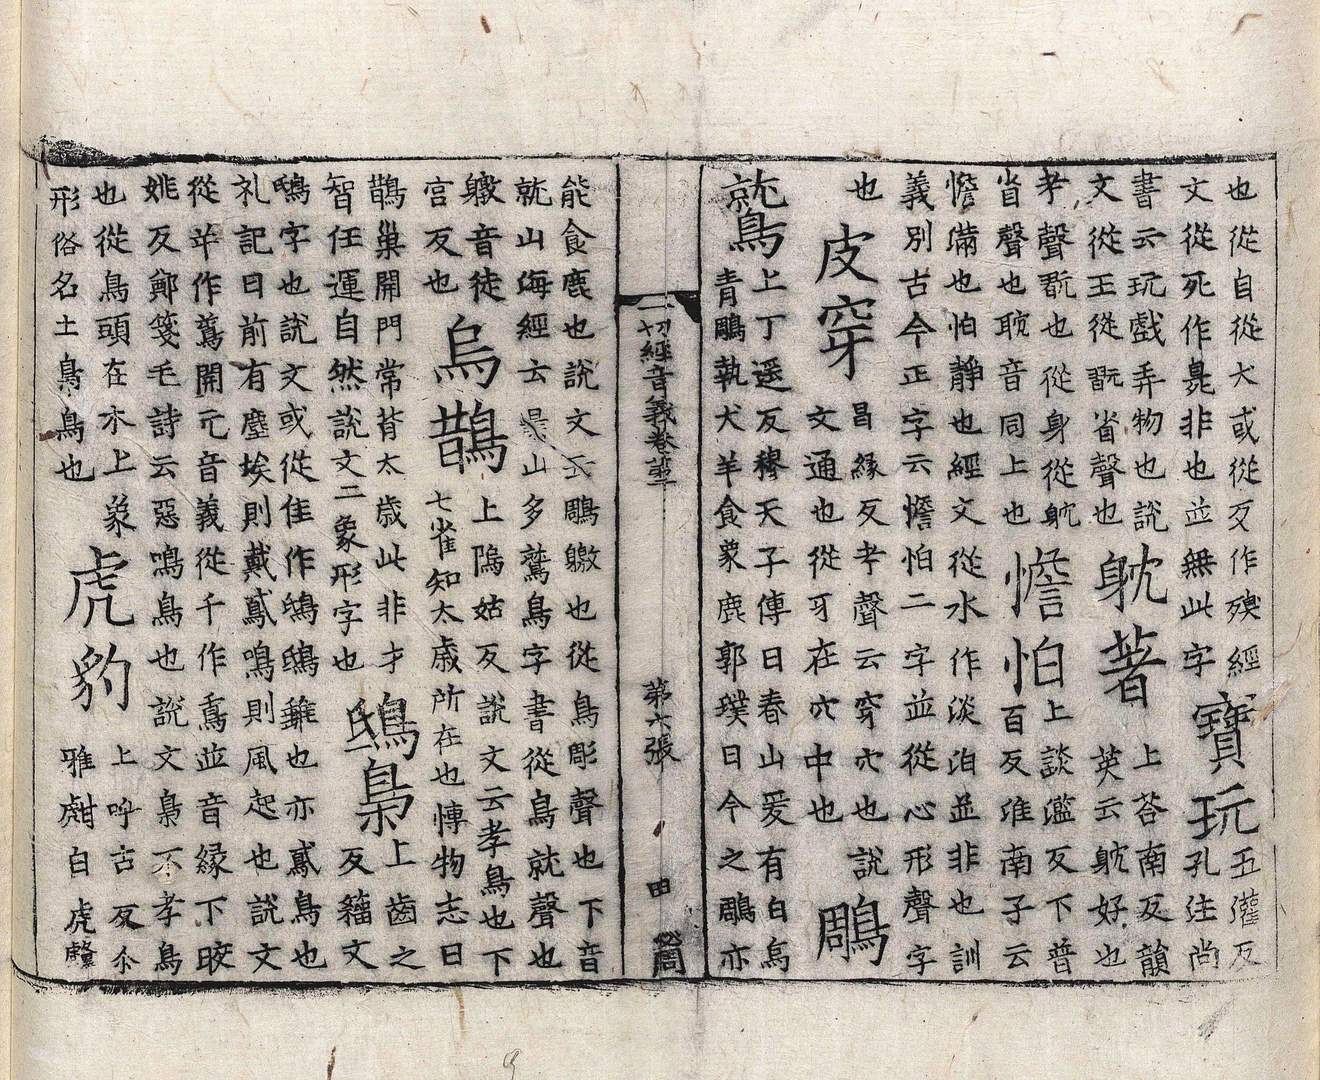 也從自從犬或從歹作殠經
文從死作臰非也並無此字
寶玩
五灌反
孔注尚
書云玩戲弄物也說
文從王從翫省聲也
躭著
上荅南反韻
英云躭好也
考聲翫也從身從躭
省聲也耽音同上也
憺怕
上談濫反下普
百反淮南子云
憺滿也怕靜也經文從水作淡泊並非也訓
義別古今正字云憺怕二字並從心形聲字
也
皮穿
昌緣反考聲云穿穴也說
文通也從牙在穴中也
鵰
鷲
上丁遥反穆天子傳曰春山爰有白鳥
青鵰執犬羊食蒙鹿郭璞曰今之鵰亦
一切經音義卷第
第六張
田
能食鹿也說文云鵰鷻也從鳥彫聲也下音
就山海經云景山多鷲鳥字書從鳥就聲也
鷻音徒
官反也
烏鵲
上隖姑反說文云孝鳥也下
七雀知太歲所在也愽物志曰
鵲巢開門常背太歲此非才
智任運自然說文二象形字也
鴟梟
上齒之
反籕文
鴟字也說文或從隹作鴟鴟雖也亦鳶鳥也
礼記曰前有塵埃則戴鳶鳴則風起也說文
從屰作䳒開元音義從千作鳶並音緣下晈
姚反鄭箋毛詩云惡鳴鳥也說文梟不孝鳥
也從鳥頭在木上象
形俗名土梟鳥也
虎豹
上呼古反尒
雅甝白虎